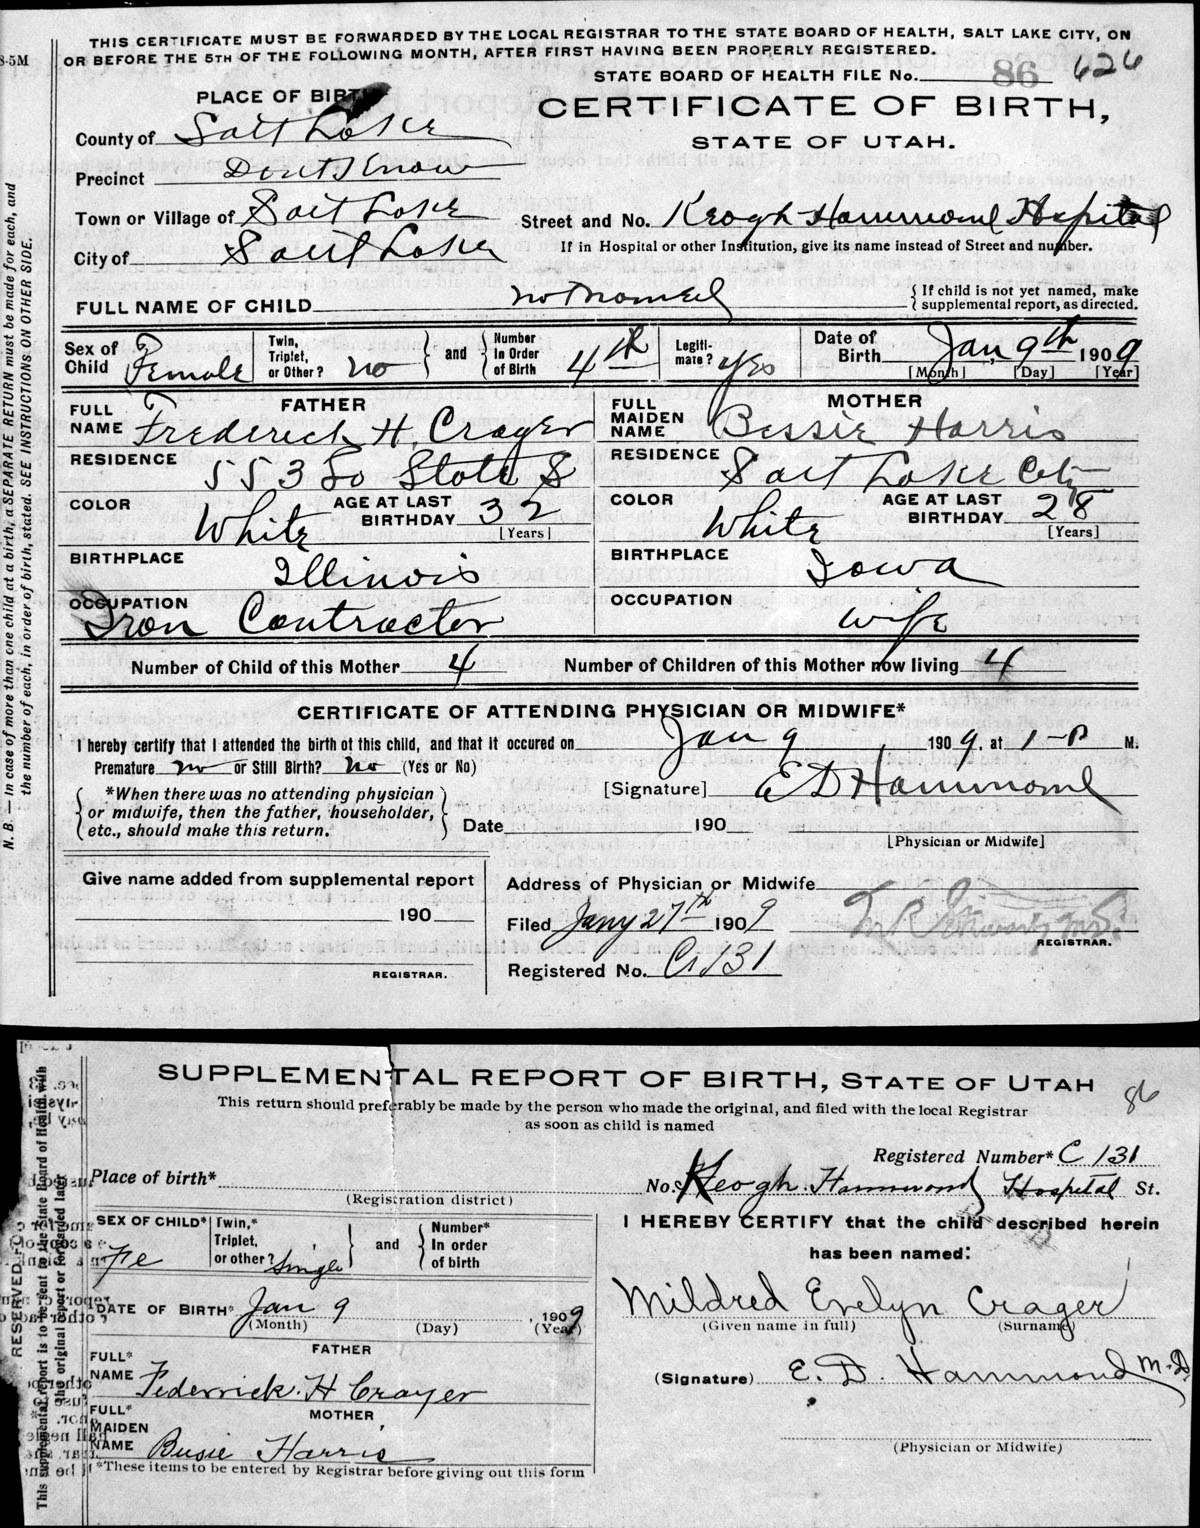 THIS CERTIFICATE MUST BE FORWARDED BY THE LOCAL REGISTRAR TO THE STATE BOARD OF HEALTH, SALT LAKE CITY, ON
OR BEFORE THE 5TH OF THE FOLLOWING MONTH, AFTER FIRST HAVING BEEN PROPERLY REGISTERED.
8-5M
STATE BOARD OF HEALTH FILE No. 86 626
PLACE OF BIRTH
CERTIFICATE OF BIRTH,
STATE OF UTAH.
County of Salt Lake
Precinct Dont Know
Town or Village of Salt Lake
Street and No. Keogh Hammond Hospital
If in Hospital or other Institution, give its name instead of Street and number.
City of Salt Lake
FULL NAME OF CHILD not named
{ If child is not yet named, make supplemental report, as directed.
Sex of Child Female
Twin, Triplet, or Other? No } and { Number In Order of Birth 4th
Legitimate? yes
Date of Birth Jan, 9th 1909
[Month] [Day] [Year]
FATHER
FULL NAME Frederick H. Crager
RESIDENCE 553 So State St
COLOR White AGE AT LAST BIRTHDAY 32
[Years]
BIRTHPLACE Illinois
OCCUPATION Iron Contractor
MOTHER
FULL MAIDEN NAME Bessie Harris
RESIDENCE Salt Lake City
COLOR White AGE AT LAST BIRTHDAY 28
[Years]
BIRTHPLACE Iowa
OCCUPATION Wife
Number of Child of this Mother 4 Number of Children of this Mother now living 4
CERTIFICATE OF ATTENDING PHYSICIAN OR MIDWIFE*
I hereby certify that I attended the birth of this child, and that it occured on Jan 9, 1909, at 1-P M.
Premature no or Still Birth? No (Yes or No)
{ *When there was no attending physician or midwife, then the father, householder, etc., should make this return. }
[Signature] E D Hammond
Date 190
[Physician or Midwife]
Give name added from supplemental report
190
REGISTRAR.
Address of Physician or Midwife
Filed Jany 27th 1909
REGISTRAR.
Registered No. C 131
N. B. — In case of more than one child at a birth, a SEPARATE RETURN must be made for each, and
the number of each, in order of birth, stated. SEE INSTRUCTIONS ON OTHER SIDE.
SUPPLEMENTAL REPORT OF BIRTH, STATE OF UTAH
86
This return should preferably be made by the person who made the original, and filed with the local Registrar
as soon as child is named
Registered Number* C 131
Place of birth*
(Registration district)
No. Keogh Hammond Hospital St.
SEX OF CHILD* Fe
Twin,* Triplet, or other? Single } and { Number* In order of birth
DATE OF BIRTH* Jan 9 1909
(Month) (Day) (Year)
FATHER
FULL* NAME Federrick H Crager
MOTHER
FULL* MAIDEN NAME Busie Harris
*These items to be entered by Registrar before giving out this form
I HEREBY CERTIFY that the child described herein
has been named:
Mildred Evelyn Crager
(Given name in full) (Surname)
(Signature) E. D. Hammond M.D.
(Physician or Midwife)
RESERVED FO
This supplemental report is to be sent to the State Board of Health with
the original report or forwarded later